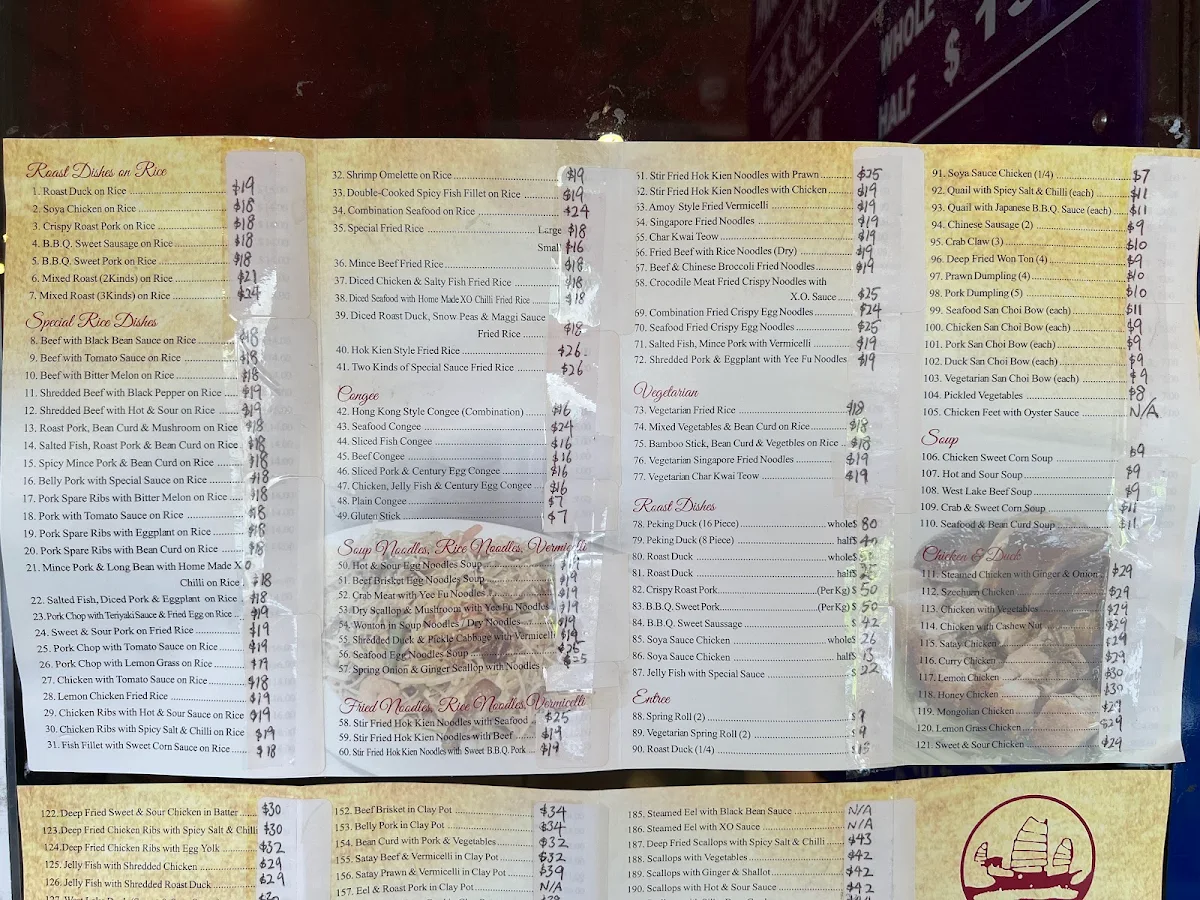 WHOLE
HALF $
Roast Dishes on Rice
1. Roast Duck on Rice $19
2. Soya Chicken on Rice $18
3. Crispy Roast Pork on Rice $18
4. B.B.Q. Sweet Sausage on Rice $18
5. B.B.Q. Sweet Pork on Rice $18
6. Mixed Roast (2Kinds) on Rice $21
7. Mixed Roast (3Kinds) on Rice $24
Special Rice Dishes
8. Beef with Black Bean Sauce on Rice $18
9. Beef with Tomato Sauce on Rice $18
10. Beef with Bitter Melon on Rice $18
11. Shredded Beef with Black Pepper on Rice $19
12. Shredded Beef with Hot & Sour on Rice $19
13. Roast Pork, Bean Curd & Mushroom on Rice $18
14. Salted Fish, Roast Pork & Bean Curd on Rice $18
15. Spicy Mince Pork & Bean Curd on Rice $18
16. Belly Pork with Special Sauce on Rice $18
17. Pork Spare Ribs with Bitter Melon on Rice $18
18. Pork with Tomato Sauce on Rice $18
19. Pork Spare Ribs with Eggplant on Rice $18
20. Pork Spare Ribs with Bean Curd on Rice $18
21. Mince Pork & Long Bean with Home Made XO
Chilli on Rice $18
22. Salted Fish, Diced Pork & Eggplant on Rice $18
23. Pork Chop with Teriyaki Sauce & Fried Egg on Rice $19
24. Sweet & Sour Pork on Fried Rice $19
25. Pork Chop with Tomato Sauce on Rice $19
26. Pork Chop with Lemon Grass on Rice $19
27. Chicken with Tomato Sauce on Rice $18
28. Lemon Chicken Fried Rice $19
29. Chicken Ribs with Hot & Sour Sauce on Rice $19
30. Chicken Ribs with Spicy Salt & Chilli on Rice $19
31. Fish Fillet with Sweet Corn Sauce on Rice $18
32. Shrimp Omelette on Rice $19
33. Double-Cooked Spicy Fish Fillet on Rice $19
34. Combination Seafood on Rice $24
35. Special Fried Rice Large $18
Small $16
36. Mince Beef Fried Rice $18
37. Diced Chicken & Salty Fish Fried Rice $18
38. Diced Seafood with Home Made XO Chilli Fried Rice $18
39. Diced Roast Duck, Snow Peas & Maggi Sauce
Fried Rice $18
40. Hok Kien Style Fried Rice $26
41. Two Kinds of Special Sauce Fried Rice $26
Congee
42. Hong Kong Style Congee (Combination) $16
43. Seafood Congee $24
44. Sliced Fish Congee $16
45. Beef Congee $16
46. Sliced Pork & Century Egg Congee $16
47. Chicken, Jelly Fish & Century Egg Congee $16
48. Plain Congee $7
49. Gluten Stick $7
Soup Noodles, Rice Noodles, Vermicelli
50. Hot & Sour Egg Noodles Soup
51. Beef Brisket Egg Noodles Soup $19
52. Crab Meat with Yee Fu Noodles $19
53. Dry Scallop & Mushroom with Yee Fu Noodles $19
54. Wonton in Soup Noodles / Dry Noodles $19
55. Shredded Duck & Pickle Cabbage with Vermicelli $19
56. Seafood Egg Noodles Soup $26
57. Spring Onion & Ginger Scallop with Noodles $25
Fried Noodles, Rice Noodles, Vermicelli
58. Stir Fried Hok Kien Noodles with Seafood $25
59. Stir Fried Hok Kien Noodles with Beef $19
60. Stir Fried Hok Kien Noodles with Sweet B.B.Q. Pork $19
61. Stir Fried Hok Kien Noodles with Prawn $25
62. Stir Fried Hok Kien Noodles with Chicken $19
63. Amoy Style Fried Vermicelli $19
64. Singapore Fried Noodles $19
65. Char Kwai Teow $19
66. Fried Beef with Rice Noodles (Dry) $19
67. Beef & Chinese Broccoli Fried Noodles $19
68. Crocodile Meat Fried Crispy Noodles with
X.O. Sauce $25
69. Combination Fried Crispy Egg Noodles $24
70. Seafood Fried Crispy Egg Noodles $25
71. Salted Fish, Mince Pork with Vermicelli $19
72. Shredded Pork & Eggplant with Yee Fu Noodles $19
Vegetarian
73. Vegetarian Fried Rice $18
74. Mixed Vegetables & Bean Curd on Rice $18
75. Bamboo Stick, Bean Curd & Vegetbles on Rice $18
76. Vegetarian Singapore Fried Noodles $19
77. Vegetarian Char Kwai Teow $19
Roast Dishes
78. Peking Duck (16 Piece) whole$ 80
79. Peking Duck (8 Piece) half$ 40
80. Roast Duck whole$
81. Roast Duck half$
82. Crispy Roast Pork (Per Kg) $ 50
83. B.B.Q. Sweet Pork (Per Kg) $ 50
84. B.B.Q. Sweet Saussage $ 42
85. Soya Sauce Chicken whole$ 26
86. Soya Sauce Chicken half$ 13
87. Jelly Fish with Special Sauce $ 22
Entree
88. Spring Roll (2) $ 9
89. Vegetarian Spring Roll (2) $ 9
90. Roast Duck (1/4) $
91. Soya Sauce Chicken (1/4) $7
92. Quail with Spicy Salt & Chilli (each) $11
93. Quail with Japanese B.B.Q. Sauce (each) $11
94. Chinese Sausage (2) $9
95. Crab Claw (3) $10
96. Deep Fried Won Ton (4) $9
97. Prawn Dumpling (4) $10
98. Pork Dumpling (5) $10
99. Seafood San Choi Bow (each) $11
100. Chicken San Choi Bow (each) $9
101. Pork San Choi Bow (each) $9
102. Duck San Choi Bow (each) $9
103. Vegetarian San Choi Bow (each) $9
104. Pickled Vegetables $8
105. Chicken Feet with Oyster Sauce N/A
Soup
106. Chicken Sweet Corn Soup $9
107. Hot and Sour Soup $9
108. West Lake Beef Soup $9
109. Crab & Sweet Corn Soup $11
110. Seafood & Bean Curd Soup $11
Chicken & Duck
111. Steamed Chicken with Ginger & Onion $29
112. Szechuen Chicken $29
113. Chicken with Vegetables $29
114. Chicken with Cashew Nut $29
115. Satay Chicken $29
116. Curry Chicken $29
117. Lemon Chicken $30
118. Honey Chicken $30
119. Mongolian Chicken $29
120. Lemon Grass Chicken $29
121. Sweet & Sour Chicken $29
122. Deep Fried Sweet & Sour Chicken in Batter $30
123. Deep Fried Chicken Ribs with Spicy Salt & Chilli $30
124. Deep Fried Chicken Ribs with Egg Yolk $32
125. Jelly Fish with Shredded Chicken $29
126. Jelly Fish with Shredded Roast Duck $29
152. Beef Brisket in Clay Pot $34
153. Belly Pork in Clay Pot $34
154. Bean Curd with Pork & Vegetables $32
155. Satay Beef & Vermicelli in Clay Pot $32
156. Satay Prawn & Vermicelli in Clay Pot $39
157. Eel & Roast Pork in Clay Pot N/A
185. Steamed Eel with Black Bean Sauce N/A
186. Steamed Eel with XO Sauce N/A
187. Deep Fried Scallops with Spicy Salt & Chilli $43
188. Scallops with Vegetables $42
189. Scallops with Ginger & Shallot $42
190. Scallops with Hot & Sour Sauce $42